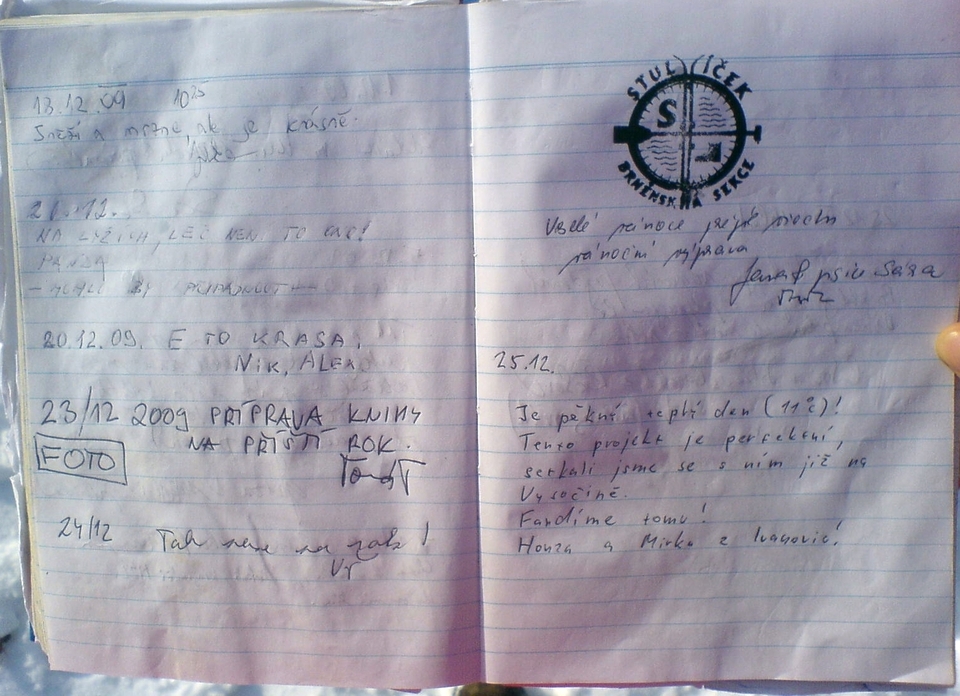 13.12.09 10²⁵
Sněží a mrzne, ale je krásně.
21.12.
NA LYŽÍCH, LEČ NENÍ TO
PANDA
20.12.09. E TO KRASA,
NIK, ALEX
23/12 2009 PŘÍPRAVA KNIHY
NA PŘÍŠTÍ ROK.
FOTO
24/12 Tak zase na rok!
STULÍČEK
S
BRNĚNSKÁ SEKCE
Veselé vánoce přeje
vánoční výprava
25.12.
Je pěkný teplý den (11°C)!
Tento projekt je perfektní,
setkali jsme se s ním již na
Vysočině.
Fandíme tomu!
Honza a Mirka z Ivanovic!